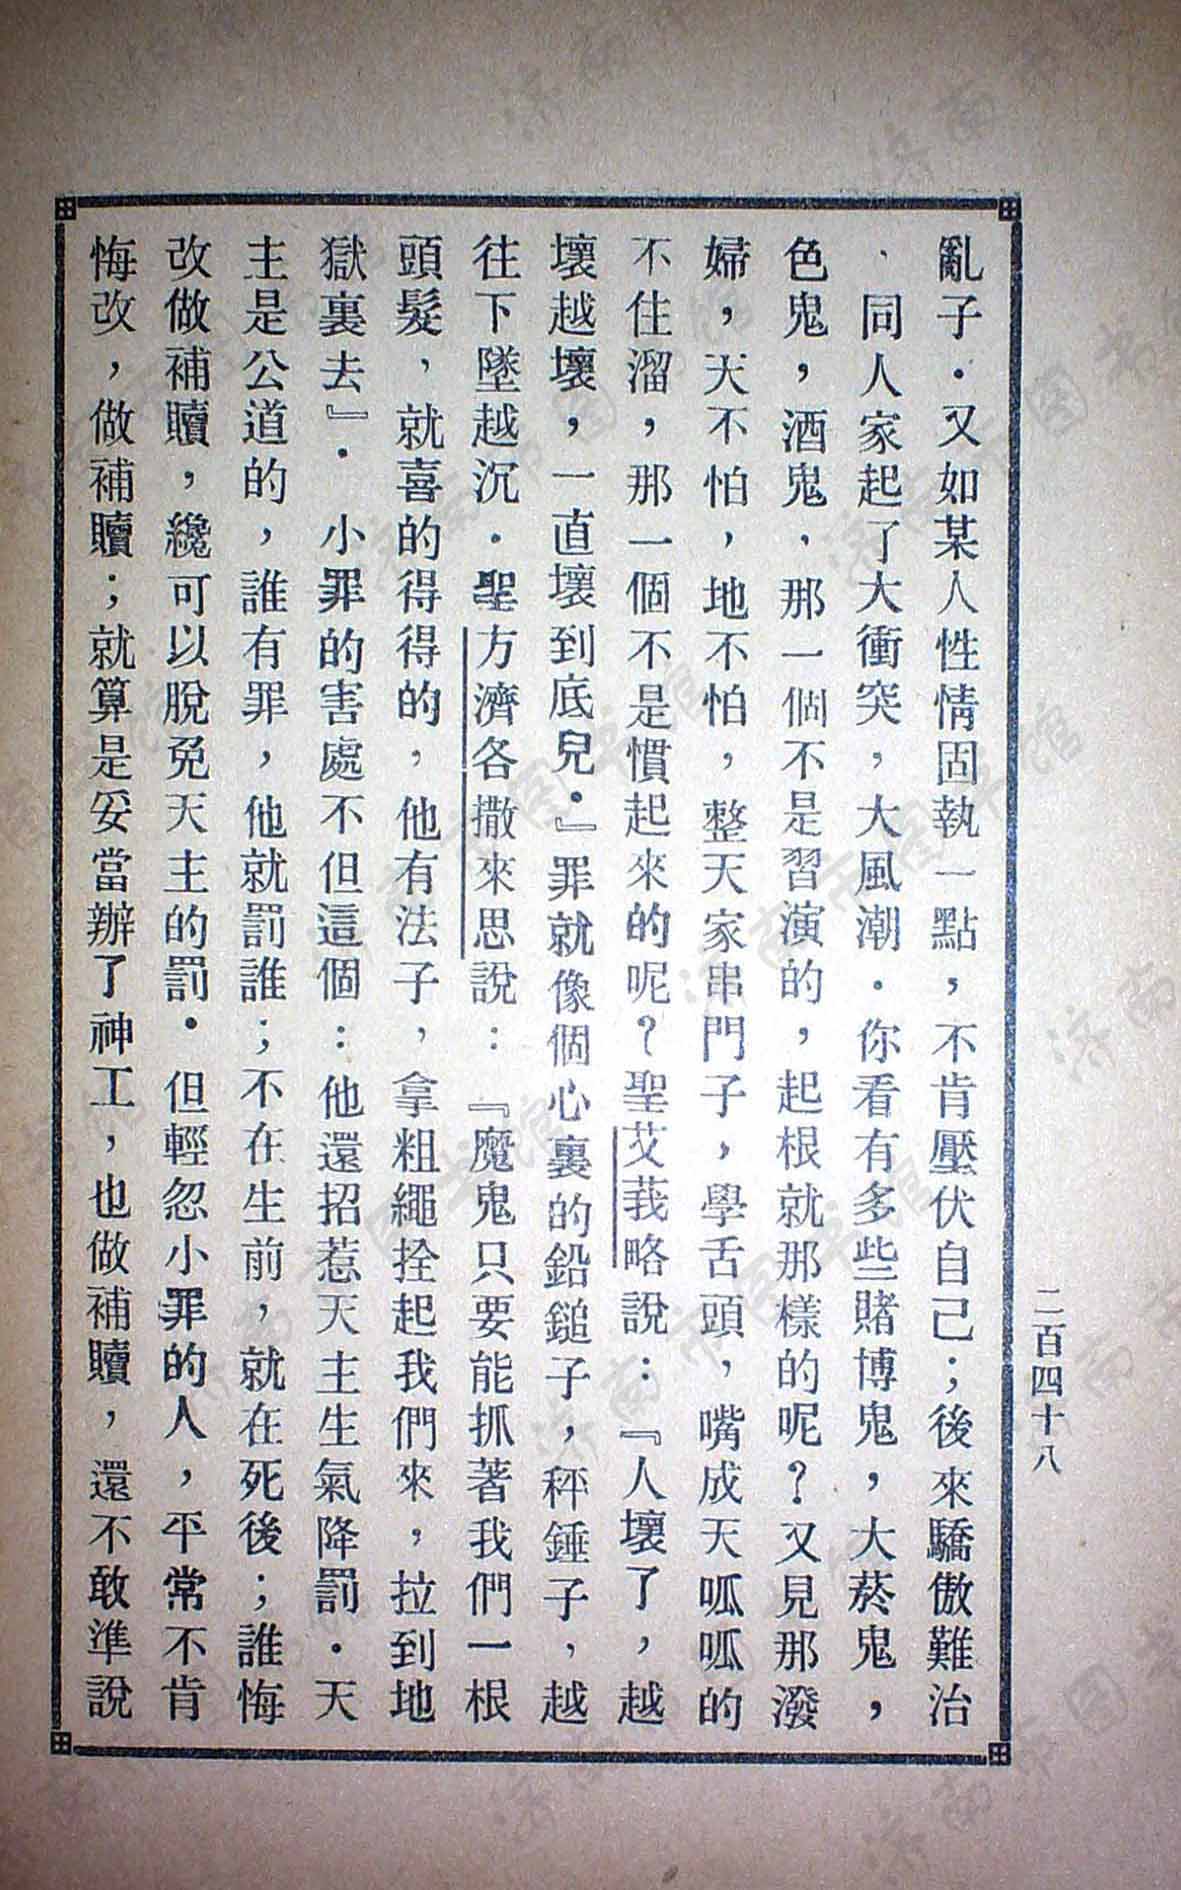 亂子．又如某人性情固執一點，不肯壓伏自己；後來驕傲難治
、同人家起了大衝突，大風潮．你看有多些賭博鬼，大菸鬼，
色鬼，酒鬼，那一個不是習演的，起根就那樣的呢？又見那潑
婦，天不怕，地不怕，整天家串門子，學舌頭，嘴成天呱呱的
不住溜，那一個不是慣起來的呢？聖艾莪略說：『人壞了，越
壞越壞，一直壞到底兒．』罪就像個心裏的鉛鎚子，秤錘子，越
往下墜越沉．聖方濟各撒來思說：『魔鬼只要能抓著我們一根
頭髮，就喜的得得的，他有法子，拿粗繩拴起我們來，拉到地
獄裏去』．小罪的害處不但這個：他還招惹天主生氣降罰．天
主是公道的，誰有罪，他就罰誰；不在生前，就在死後；誰悔
改做補贖，纔可以脫免天主的罰．但輕忽小罪的人，平常不肯
悔改，做補贖；就算是妥當辦了神工，也做補贖，還不敢準說
二百四十八
济南市图书馆